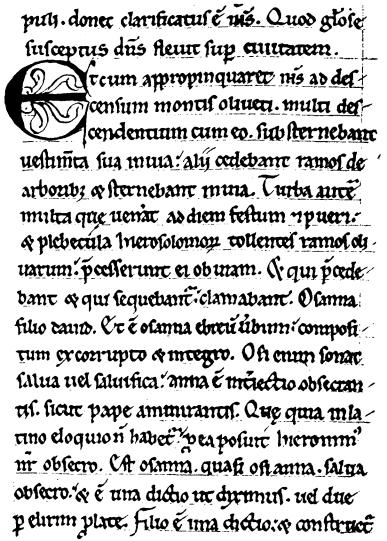 puli. donec clarificatus ē ih̄s. Quod gl̄ose
susceptus dn̄s fleuit sup̄ ciuitatem.
Et cum appropinquaret ih̄s ad des
censum montis oliueti. multi des
cendentium cum eo. substernebant
uestim̄ta sua in uia: alij cedebant ramos de
arborib; & sternebant in uia. Turba autē
multa que uen̄at ad diem festum ⁊ pueri:
& plebecula hierosolomoꝝ tollentes ramos oli
uarum: p̄cesserunt ei obuiam. & qui p̄cede
bant & qui sequebant᷑: clamabant. Osanna
filio dauid. Et ē osanna ebreū ūbum: composi
tum ex corrupto & integro. Osi enim sonat
salua uel saluifica: anna ē int̄iectio obsecran
tis. sicut pape ammirantis. Que quia in la
tino eloquio n̄ habet᷑: p ea posuit hieronim᷒
nr̄ obsecro. Est osanna. quasi osi anna. salua
obsecro: & ē una dictio ut diximus. uel due
ꝑ elisim prolate. Filio ē una dictio: & construct᷑